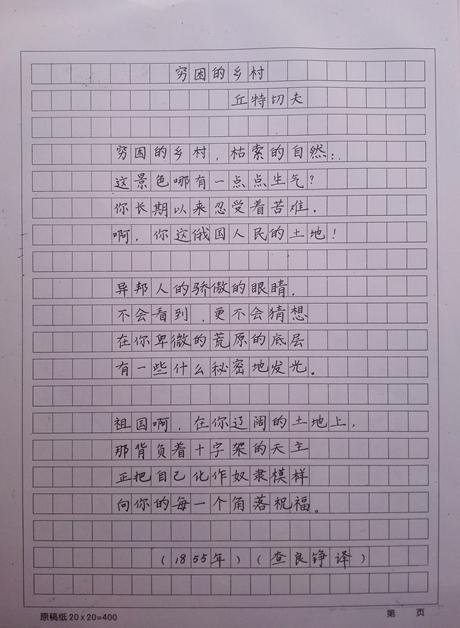 穷困的乡村
丘特切夫
穷困的乡村，枯索的自然：
这景色哪有一点点生气？
你长期以来忍受着苦难，
啊，你这俄国人民的土地！
异邦人的骄傲的眼睛，
不会看到，更不会猜想
在你卑微的荒原的底层
有一些什么秘密地发光。
祖国啊，在你辽阔的土地上，
那背负着十字架的天主
正把自己化作奴隶模样
向你的每一个角落祝福。
（1855年）（查良铮译）
原稿纸20×20=400 第 页